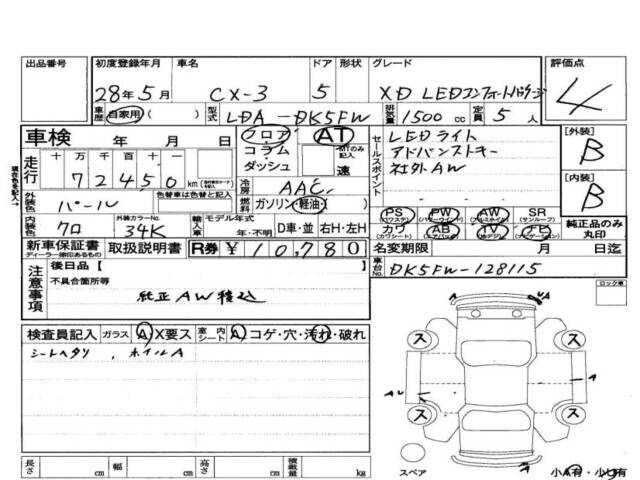 出品番号 初度登録年月 車名 ドア 形状 グレード 評価点
28年5月 CX-3 5 XD LEDコンフォートパッケージ 4
車歴 自家用 ( ) 型式 LDA-DK5FW 排気量 1500 cc 定員 5 人
車検 年 月 日 フロア AT セールスポイント LEDライト [外装]
コラム MTのみ記入 アドバンストキー B
走行 十万 万 千 百 十 一 ダッシュ 速 社外AW
72450 km 冷房 AAC [内装]
外装色 パール 色替車は色替と記入 燃料 ガソリン・軽油 B
PS PW AW SR
内装色 クロ 外装カラーNo. 34K 輸入車 モデル年式 年・不明 D車・並 右H・左H カワ AB TV ナビ 純正品のみ丸印
新車保証書 取扱説明書 R券 ¥10,780 名変期限 月 日迄
ディーラー捺印あるもの
注意事項 後日品【 車台No. DK5FW-128115
不具合箇所等 ロック車
純正AW積込
検査員記入 ガラス A X要ス 室内シート A コゲ・穴・汚れ・破れ
シートヘタリ、ホイルA
ス ス
AU A
ス ス
A
長さ cm 幅 cm 高さ cm 積載量 kg スペア 小A有・小U有